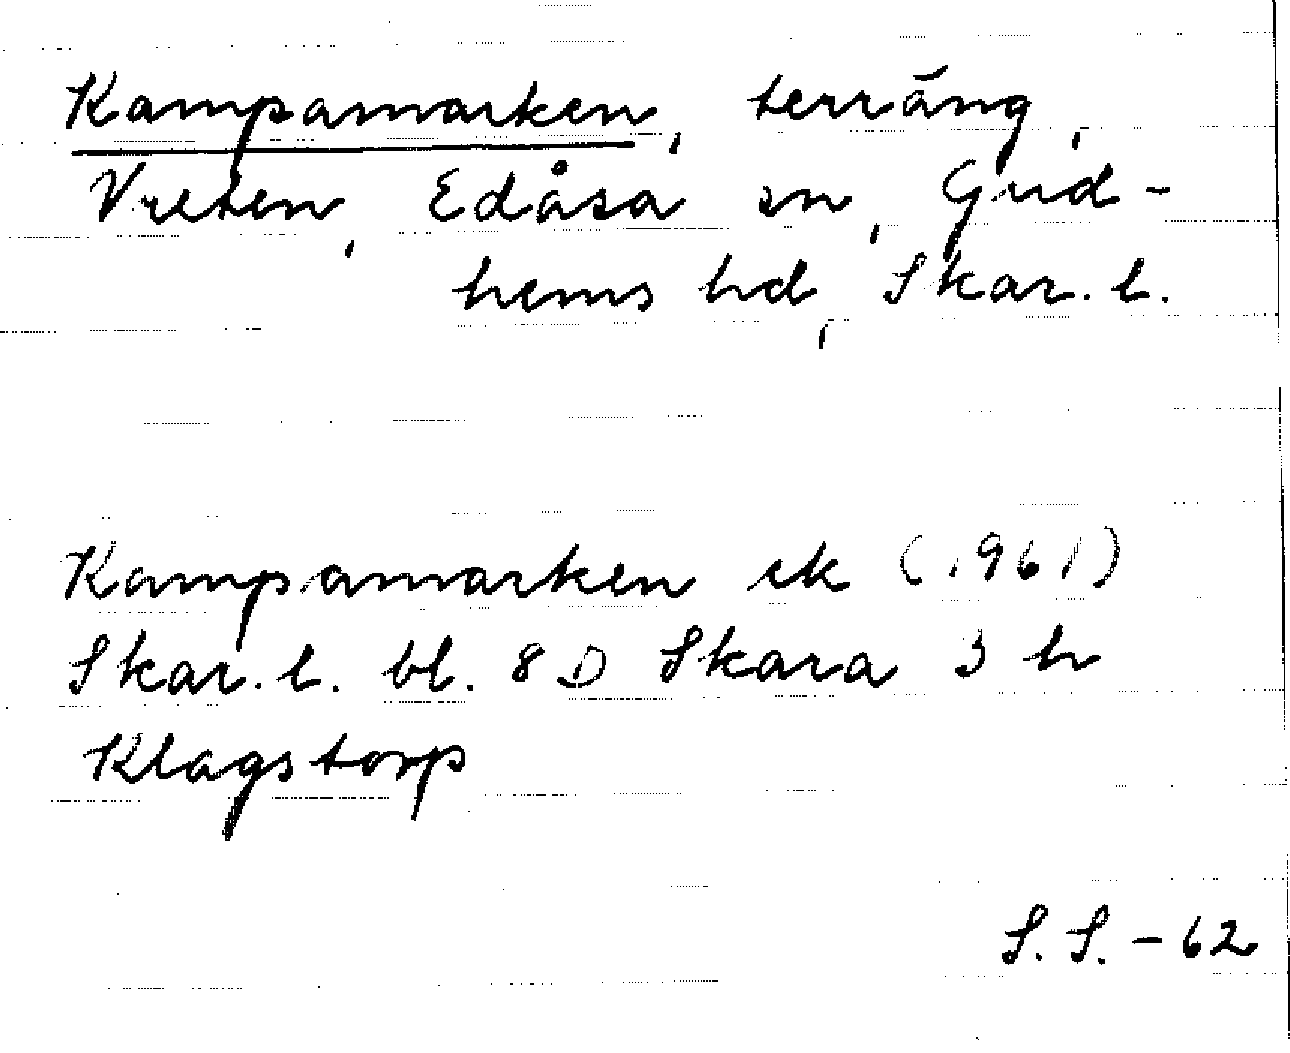 Kampamarken, terräng,
Vreten, Edåsa sn, Gud-
hems hd, Skar. l.
Kampamarken ek (1961)
Skar. l. bl. 8 D Skara 3 h
Klagstorp
S. S. - 62